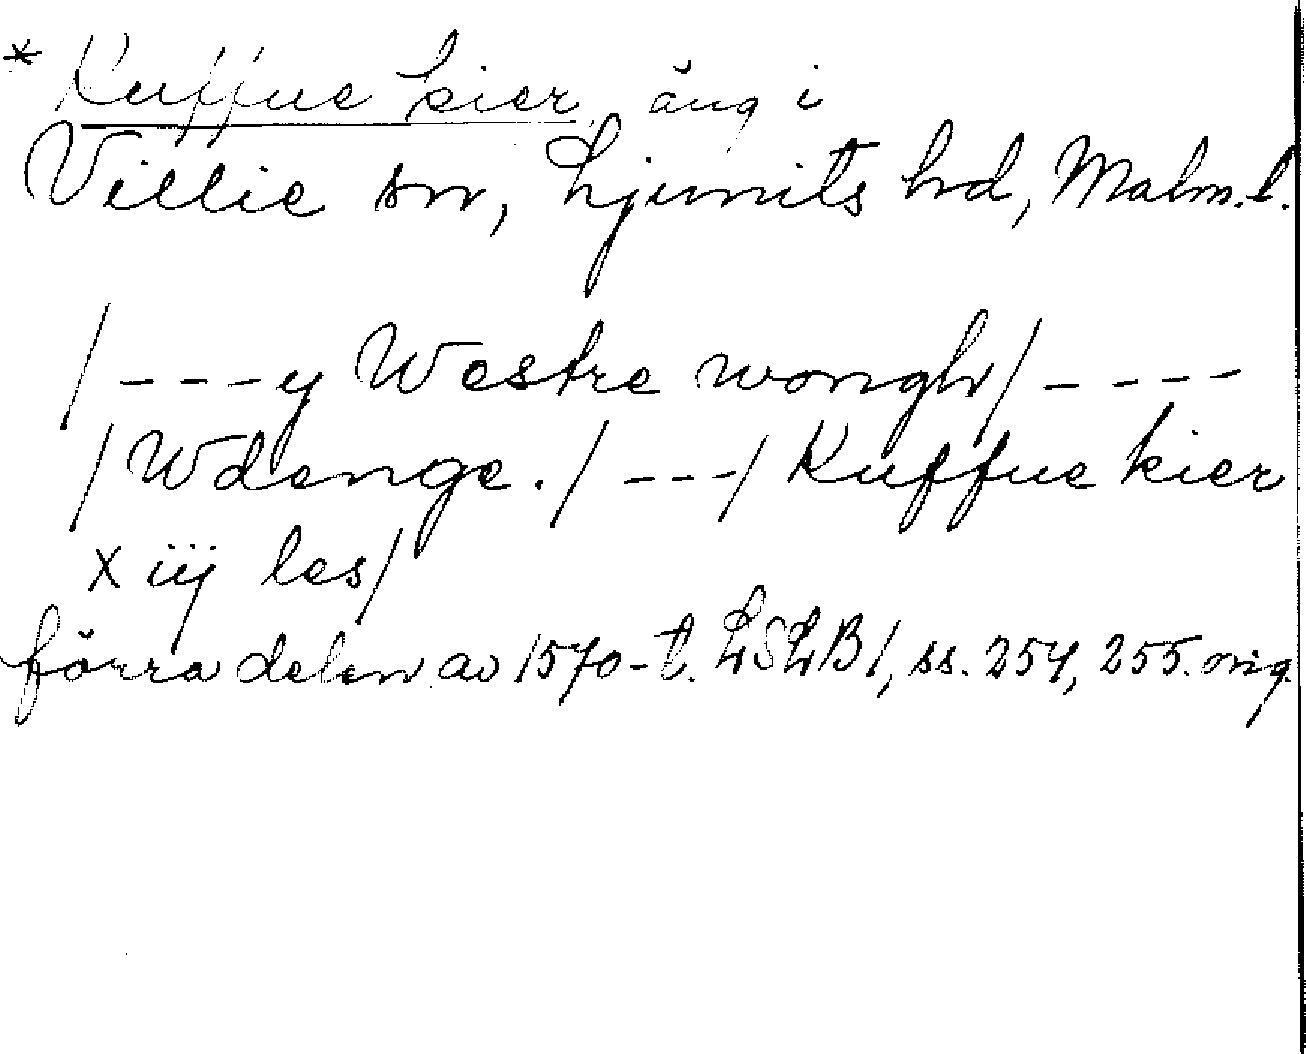 * Kuffue kier, äng i
Villie sn, Ljunits hrd, Malm.l.
/---y Westre wongh/----
/Wdenge./---/Kuffue kier
x iij les/
förra delen av 1570-t. LSLB1, ss. 254, 255. orig.